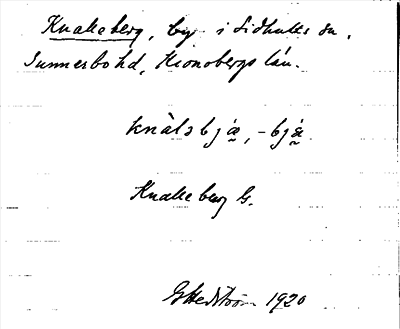 Knalleberg, by i Lidhults sn,
Sunnerbo hd, Kronobergs län.
knàlɜbjæ̰, -bjæ̰
Knalleberg G.
G Hedström 1920